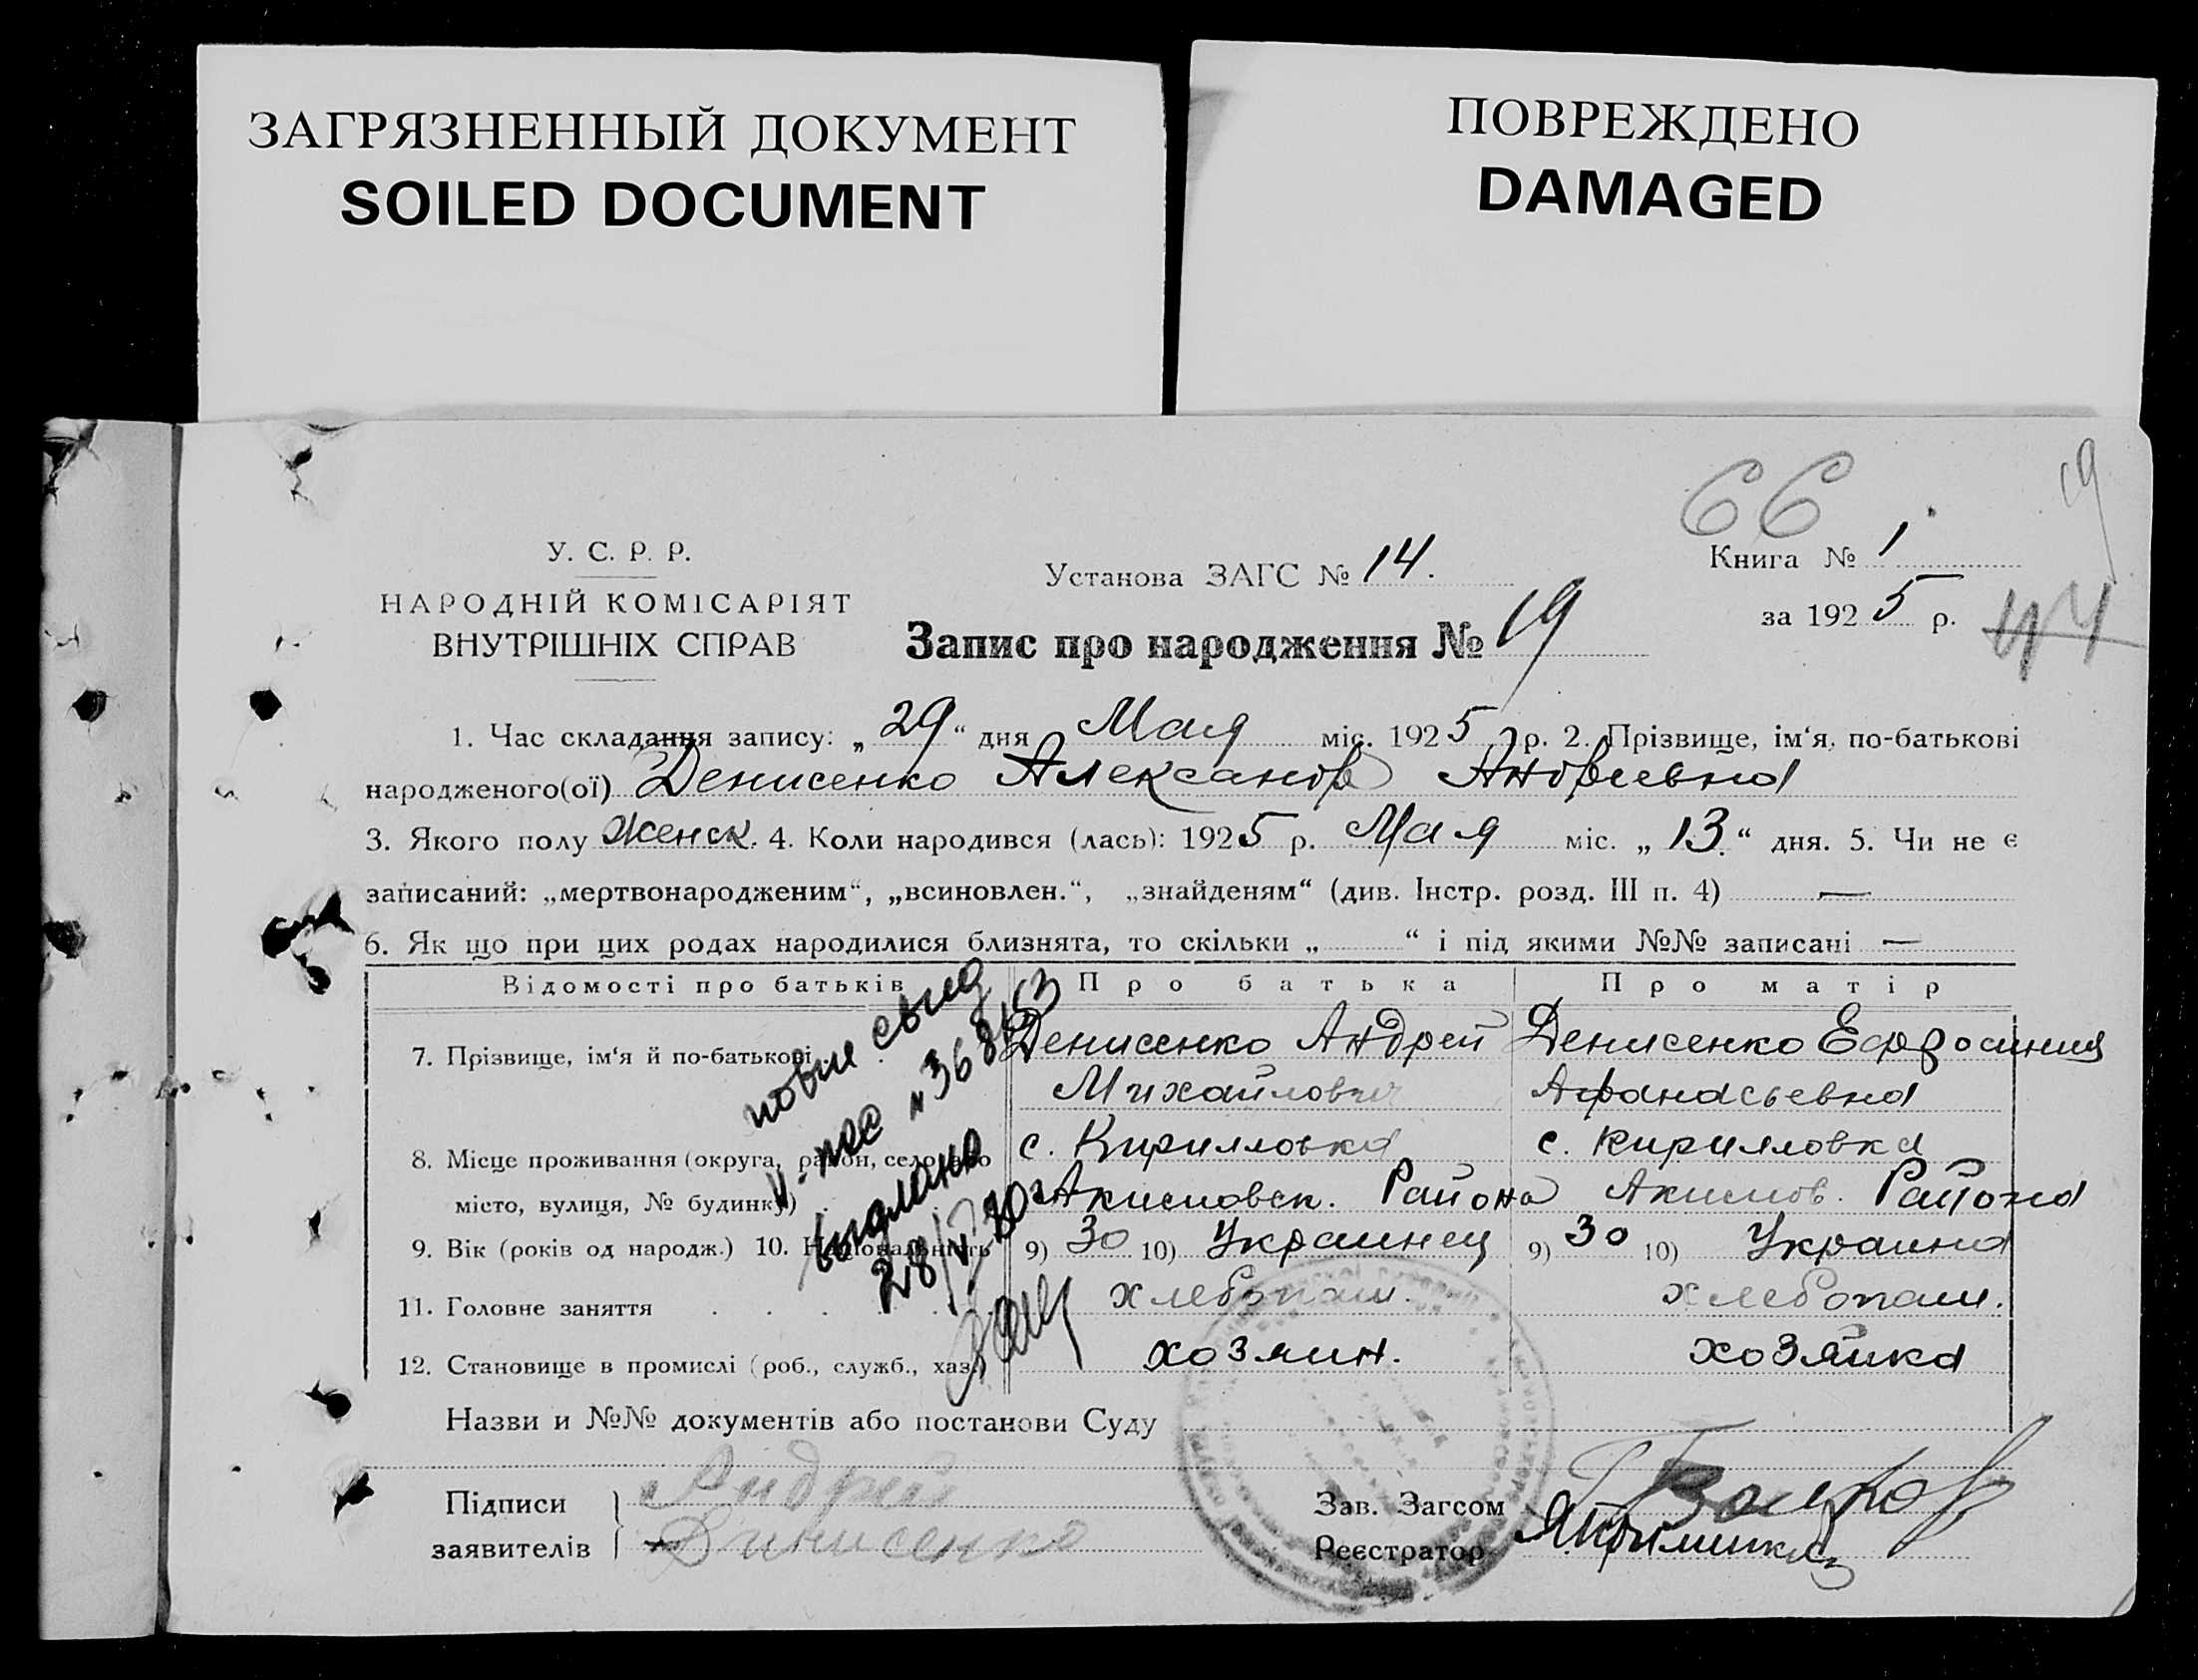 ЗАГРЯЗНЕННЫЙ ДОКУМЕНТ
SOILED DOCUMENT
ПОВРЕЖДЕНО
DAMAGED
66
19
У. С. Р. Р.
НАРОДНІЙ КОМІСАРІЯТ
ВНУТРІШНІХ СПРАВ
Установа ЗАГС № 14.
Запис про народження № 19
Книга № 1
за 1925 р.
44
1. Час складання запису: „29“ дня Мая міс. 1925 р. 2. Прізвище, ім‘я, по-батькові
народженого(ої) Денисенко Александр Андреевна
3. Якого полу женск. 4. Коли народився (лась): 1925 р. Мая міс. „13.“ дня. 5. Чи не є
записаний: „мертвонародженим“, „всиновлен.“, „знайденям“ (див. Інстр. розд. III п. 4) —
6. Як що при цих родах народилися близнята, то скільки „ “ і під якими №№ записані —
Відомості про батьків Про батька Про матір
7. Прізвище, ім‘я й по-батькові Денисенко Андрей Денисенко Ефросиния
Михайлович Афанасьевна
8. Місце проживання (округа, район, село або с. Кирилловка с. Кирилловка
місто, вулиця, № будинку) Акимовск. Района Акимов. Района
9. Вік (років од народж.) 10. Національність 9) 30 10) Украинец 9) 30 10) Украина
11. Головне заняття . . . . хлебопаш. хлебопаш.
12. Становище в промислі (роб., служб., хаз.) хозяин. хозяйка
выдано
28/V-80г
Назви и №№ документів або постанови Суду
Підписи
заявителів
Андрей
Динисенко
Зав. Загсом
Реєстратор